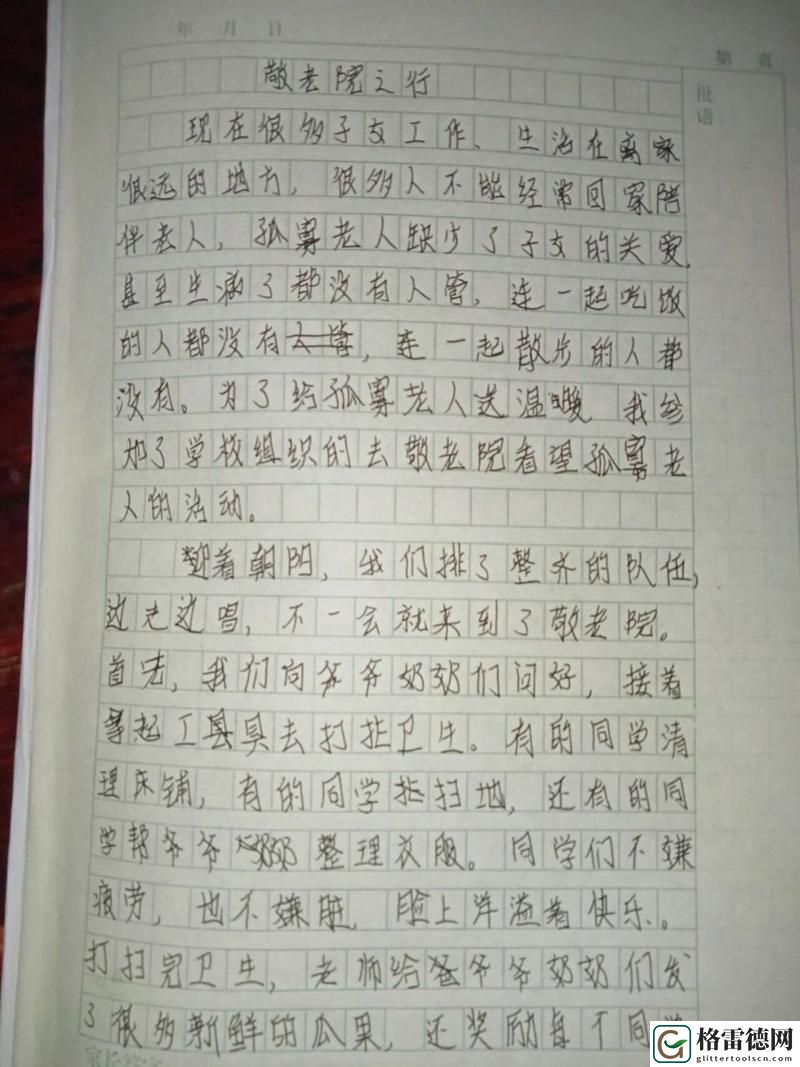 年 月 日
第 页
批语
敬老院之行
现在很多子女工作、生活在离家
很远的地方，很多人不能经常回家陪
伴老人，孤寡老人缺少了子女的关爱，
甚至生病了都没有人管，连一起吃饭
的人都没有人管，连一起散步的人都
没有。为了给孤寡老人送温暖，我参
加了学校组织的去敬老院看望孤寡老
人的活动。
迎着朝阳，我们排了整齐的队伍，
边走边唱，不一会就来到了敬老院。
首先，我们向爷爷奶奶们问好，接着
拿起工具具去打扫卫生。有的同学清
理床铺，有的同学扫地，还有的同
学帮爷爷奶奶整理衣服。同学们不嫌
疲劳，也不嫌脏，脸上洋溢着快乐。
打扫完卫生，老师给爷爷奶奶们发
了很多新鲜的瓜果，还奖励每个同学
家长签字
格雷德网
glittertoolscn.com